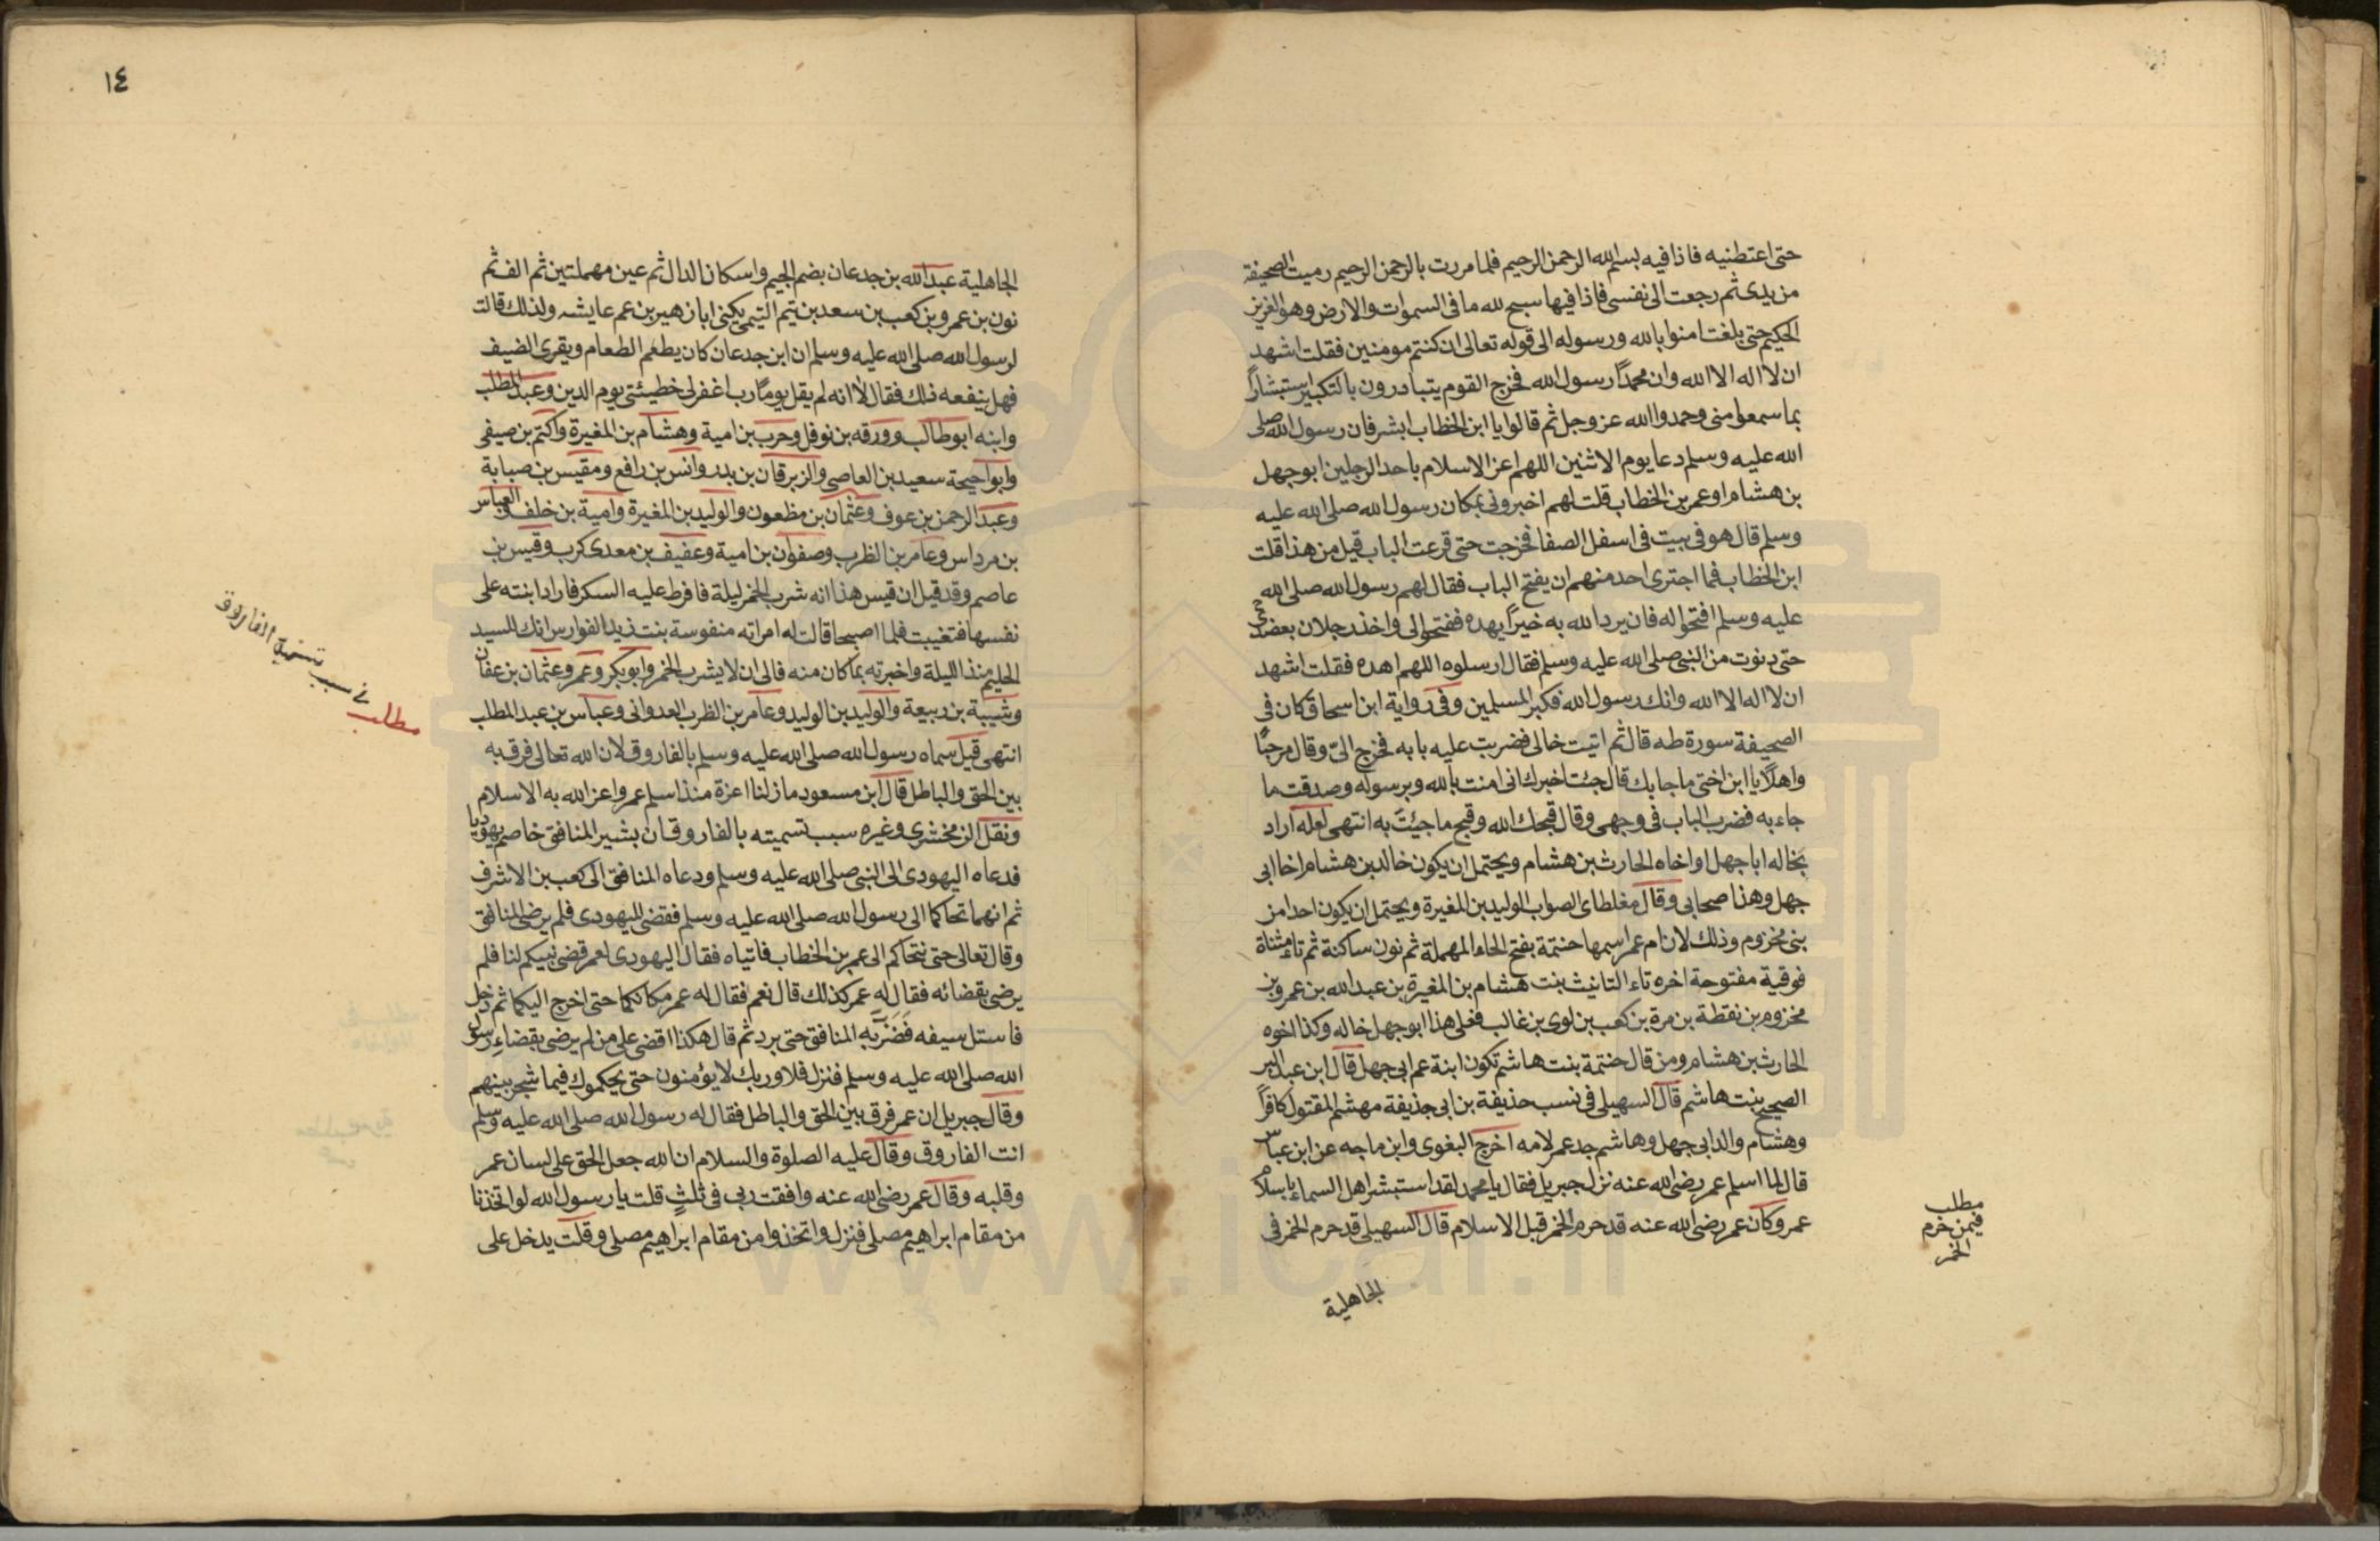 حتى اعتطنيه فاذا فيه بسم الله الرحمن الرحيم فلما مررت بالرحمن الرحيم رميت الصحيفة
من يدى ثم رجعت الى نفسى فاذا فيها سبح لله ما فى السموات والارض وهو العزيز
الحكيم حتى بلغت امنوا بالله ورسوله الى قوله تعالى ان كنتم مومنين فقلت اشهد
ان لا اله الا الله وان محمدًا رسول الله فخرج القوم يتبادرون بالتكبير استبشارًا
بما سمعوا منى وحمدوا الله عز وجل ثم قالوا يا ابن الخطاب ابشر فان رسول الله صلى
الله عليه وسلم دعا يوم الاثنين اللهم اعز الاسلام باحد الرجلين ابو جهل
بن هشام او عمر بن الخطاب قلت لهم اخبرونى بمكان رسول الله صلى الله عليه
وسلم قال هو فى بيت فى اسفل الصفا فخرجت حتى قرعت الباب قيل من هذا قلت
ابن الخطاب فما اجترى احد منهم ان يفتح الباب فقال لهم رسول الله صلى الله
عليه وسلم افتحوا له فان يرد الله به خيرًا يهده ففتحوا لى واخذ رجلان بعضدى
حتى دنوت من النبى صلى الله عليه وسلم فقال ارسلوه اللهم اهده فقلت اشهد
ان لا اله الا الله وانك رسول الله فكبر المسلمين وفى رواية ابن اسحاق كان فى
الصحيفة سورة طه قال ثم اتيت خالى فضربت عليه بابه فخرج الىّ وقال مرحبًا
واهلًا يا ابن اختى ما جا بك قال جئت اخبرك انى امنت بالله وبرسوله وصدقت ما
جاء به فضرب الباب فى وجهى وقال قبحك الله وقبح ما جيئت به انتهى لعله اراد
بخاله ابا جهل او اخاه الحارث بن هشام ويحتمل ان يكون خالد بن هشام اخا ابى
جهل وهذا صحابى وقال مغلطاى الصواب الوليد بن المغيرة ويحتمل ان يكون احدا من
بنى مخزوم وذلك لان ام عمر اسمها حنتمة بفتح الحاء المهملة ثم نون ساكنة ثم تاء مثناة
فوقية مفتوحة اخره تاء التانيث بنت هشام بن المغيرة بن عبد الله بن عمرو بن
مخزوم بن نقطة بن مرة بن كعب بن لوى بن غالب فعلى هذا ابو جهل خاله وكذا اخوه
الحارث بن هشام ومن قال حنتمة بنت هاشم تكون ابنة عم ابى جهل قال ابن عبد البر
الصحيح بنت هاشم قال السهيلى فى نسب حذيفة بن ابى حذيفة مهشم المقتول كافرًا
وهشام والد ابى جهل وهاشم جد عمر لامه اخرج البغوى وابن ماجه عن ابن عباس
قال لما اسلم عمر رضى الله عنه نزل جبريل فقال يا محمد لقد استبشر اهل السماء باسلام
عمر وكان عمر رضى الله عنه قد حرم الخمر قبل الاسلام قال السهيلى قد حرم الخمر فى
الجاهلية
مطلب
فيمن حرم
الخمر
١٤
الجاهلية عبد الله بن جدعان بضم الجيم واسكان الدال ثم عين مهملتين ثم الف ثم
نون بن عمرو بن كعب بن سعد بن تيم التيمى يكنى ابا زهير بن عم عايشه ولذلك قالت
لرسول الله صلى الله عليه وسلم ان ابن جدعان كان يطعم الطعام ويقرى الضيف
فهل ينفعه ذلك فقال لا انه لم يقل يومًا رب اغفر لى خطيئتى يوم الدين وعبد المطلب
وابنه ابو طالب وورقه بن نوفل وحرب بن امية وهشام بن المغيرة واكثم بن صيفى
وابو احيحة سعيد بن العاصى والزبرقان بن بدر وانس بن رافع ومقيس بن صبابة
وعبد الرحمن بن عوف وعثمان بن مظعون والوليد بن المغيرة وامية بن خلف والعباس
بن مرداس وعامر بن الظرب وصفوان بن امية وعفيف بن معدى كرب وقيس بن
عاصم وقد قيل ان قيس هذا انه شرب الخمر ليلة فافرط عليه السكر فاراد ابنته على
نفسها فتغيبت فلما اصبحا قالت له امراته منفوسة بنت زيد الفوارس انك السيد
الحليم منذ الليلة واخبرته بما كان منه فالى ان لا يشرب الخمر وابو بكر وعمر وعثمان بن عفان
وشيبة بن ربيعة والوليد بن الوليد وعامر بن الظرب العدوانى وعباس بن عبد المطلب
انتهى قيل سماه رسول الله صلى الله عليه وسلم بالفاروق لان الله تعالى فرق به
بين الحق والباطل قال ابن مسعود ما زلنا اعزة منذ اسلم عمر واعز الله به الاسلام
ونقل الزمخشرى وغيره سبب تسميته بالفاروق ان بشير المنافق خاصم يهوديا
فدعاه اليهودى الى النبى صلى الله عليه وسلم ودعاه المنافق الى كعب بن الاشرف
ثم انهما تحاكما الى رسول الله صلى الله عليه وسلم فقضى لليهودى فلم يرضى المنافق
وقال تعالى حتى نتحاكم الى عمر بن الخطاب فاتياه فقال اليهودى لعمر قضى نبيكم لنا فلم
يرضى بقضائه فقال له عمر كذلك قال نعم فقال له عمر مكانكما حتى اخرج اليكما ثم دخل
فاستل سيفه فضَرَبَ به المنافق حتى برد ثم قال هكذا اقضى على من لم يرضى بقضاء رسول
الله صلى الله عليه وسلم فنزل فلا وربك لا يؤمنون حتى يحكموك فيما شجر بينهم
وقال جبريل ان عمر فرق بين الحق والباطل فقال له رسول الله صلى الله عليه وسلم
انت الفاروق وقال عليه الصلوة والسلام ان الله جعل الحق على لسان عمر
وقلبه وقال عمر رضى الله عنه وافقت ربى فى ثلثٍ قلت يا رسول الله لو اتخذنا
من مقام ابراهيم مصلى فنزل واتخذوا من مقام ابراهيم مصلى وقلت يدخل على
مطلب فى سبب تسمية الفاروق
www.ical.ir